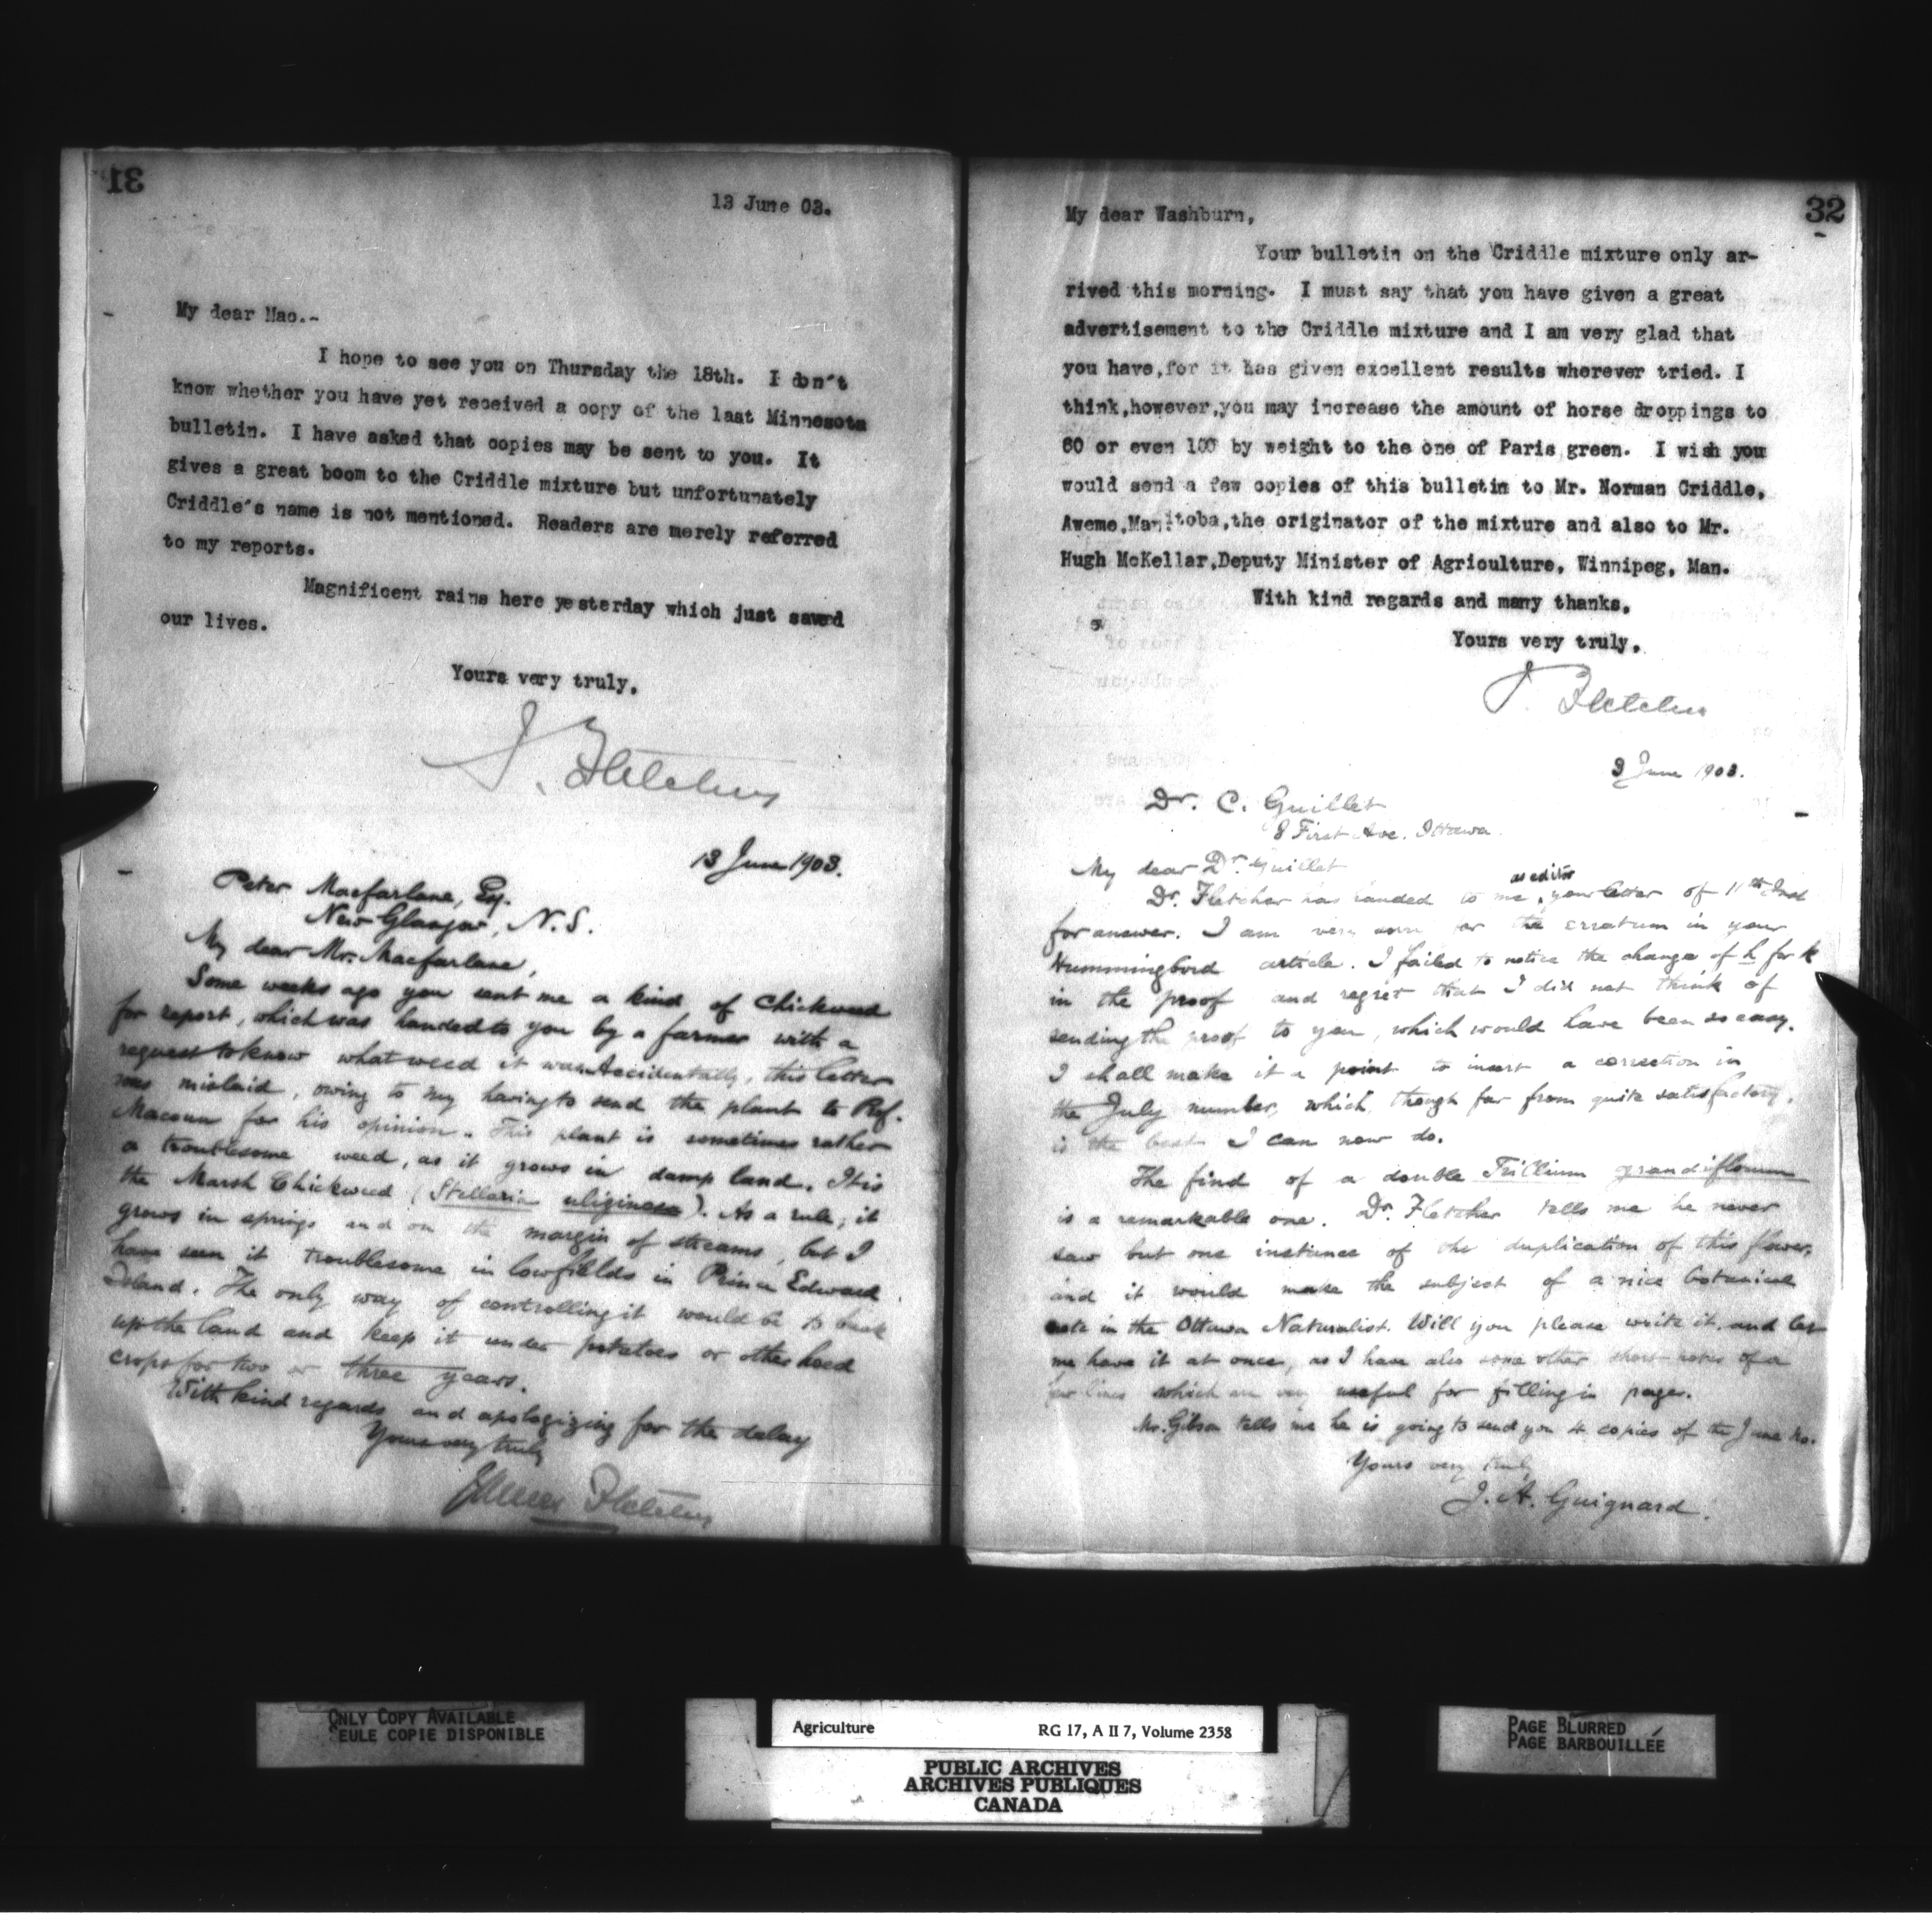 31
13 June 03.
My dear Mac.-
I hope to see you on Thursday the 18th. I don't
know whether you have yet received a copy of the last Minnesota
bulletin. I have asked that copies may be sent to you. It
gives a great boom to the Criddle mixture but unfortunately
Criddle's name is not mentioned. Readers are merely referred
to my reports.
Magnificent rains here yesterday which just saved
our lives.
Yours very truly,
J. Fletcher
13 June 1903.
Peter Macfarlane, Esq.
New Glasgow, N.S.
My dear Mr. Macfarlane,
Some weeks ago you sent me a kind of Chickweed
for report, which was handed to you by a farmer with a
request to know what weed it was. Accidentally, this letter
was mislaid, owing to my having to send the plant to Prof.
Macoun for his opinion. This plant is sometimes rather
a troublesome weed, as it grows in damp land. It is
the Marsh Chickweed (Stellaria uliginosa). As a rule, it
grows in springs and on the margin of streams, but I
have seen it troublesome in low fields in Prince Edward
Island. The only way of controlling it would be to break
up the land and keep it under potatoes or other hoed
crops for two or three years.
With kind regards and apologizing for the delay
Yours very truly
James Fletcher
32
My dear Washburn,
Your bulletin on the Criddle mixture only ar-
rived this morning. I must say that you have given a great
advertisement to the Criddle mixture and I am very glad that
you have, for it has given excellent results wherever tried. I
think, however, you may increase the amount of horse droppings to
60 or even 100 by weight to the one of Paris green. I wish you
would send a few copies of this bulletin to Mr. Norman Criddle,
Aweme, Manitoba, the originator of the mixture and also to Mr.
Hugh McKellar, Deputy Minister of Agriculture, Winnipeg, Man.
With kind regards and many thanks,
Yours very truly,
J. Fletcher
3 June 1903.
Dr. C. Guillet
8 First Ave. Ottawa.
My dear Dr. Guillet
as editor
Dr. Fletcher has handed to me, your letter of 11th Inst
for answer. I am very sorry for the erratum in your
Hummingbird article. I failed to notice the change of h for k
in the proof and regret that I did not think of
sending the proof to you, which would have been so easy.
I shall make it a point to insert a correction in
the July number, which, though far from quite satisfactory,
is the best I can now do.
The find of a double Trillium grandiflorum
is a remarkable one. Dr. Fletcher tells me he never
saw but one instance of the duplication of this flower,
and it would make the subject of a nice botanical
note in the Ottawa Naturalist. Will you please write it, and let
me have it at once, as I have also some other short notes of a
few lines which are very useful for filling in pages.
Mr. Gibson tells me he is going to send you 4 copies of the June No.
Yours very truly
J. A. Guignard.
ONLY COPY AVAILABLE
SEULE COPIE DISPONIBLE
Agriculture RG 17, A II 7, Volume 2358
PUBLIC ARCHIVES
ARCHIVES PUBLIQUES
CANADA
PAGE BLURRED
PAGE BARBOUILLÉE